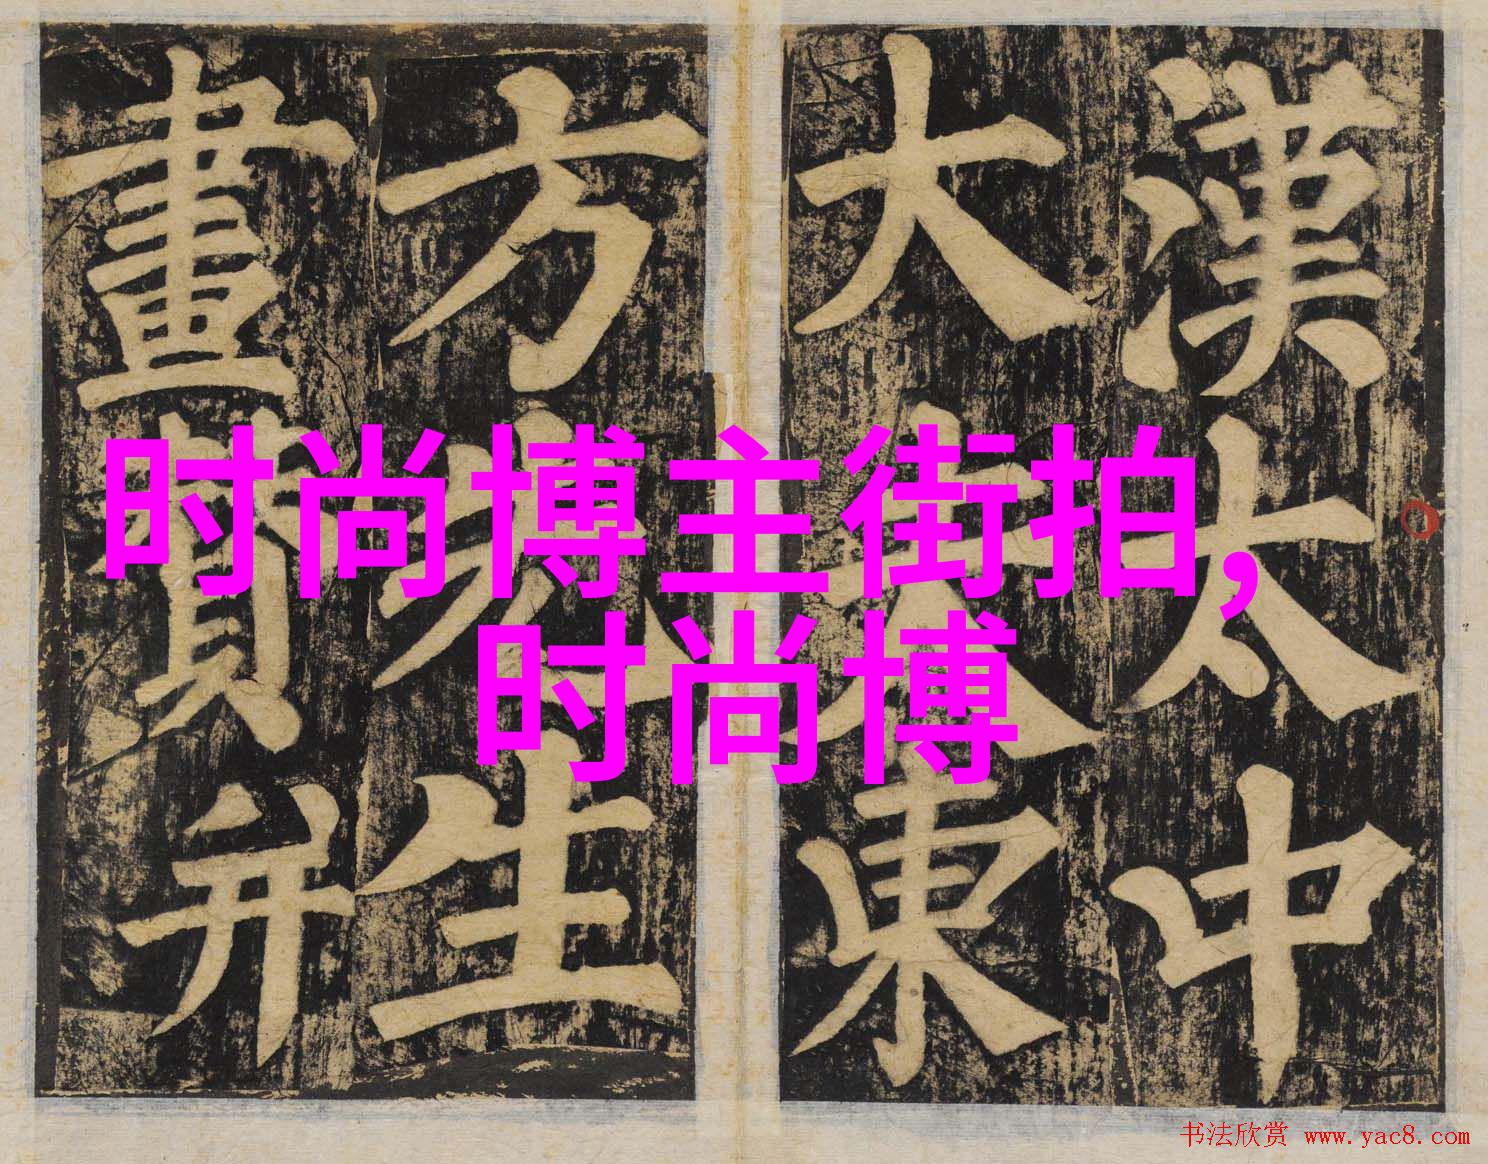 漢太中
大夫東
方先生
畫贊并
时尚博主街拍,
时尚博
书法欣赏 www.yac8.com